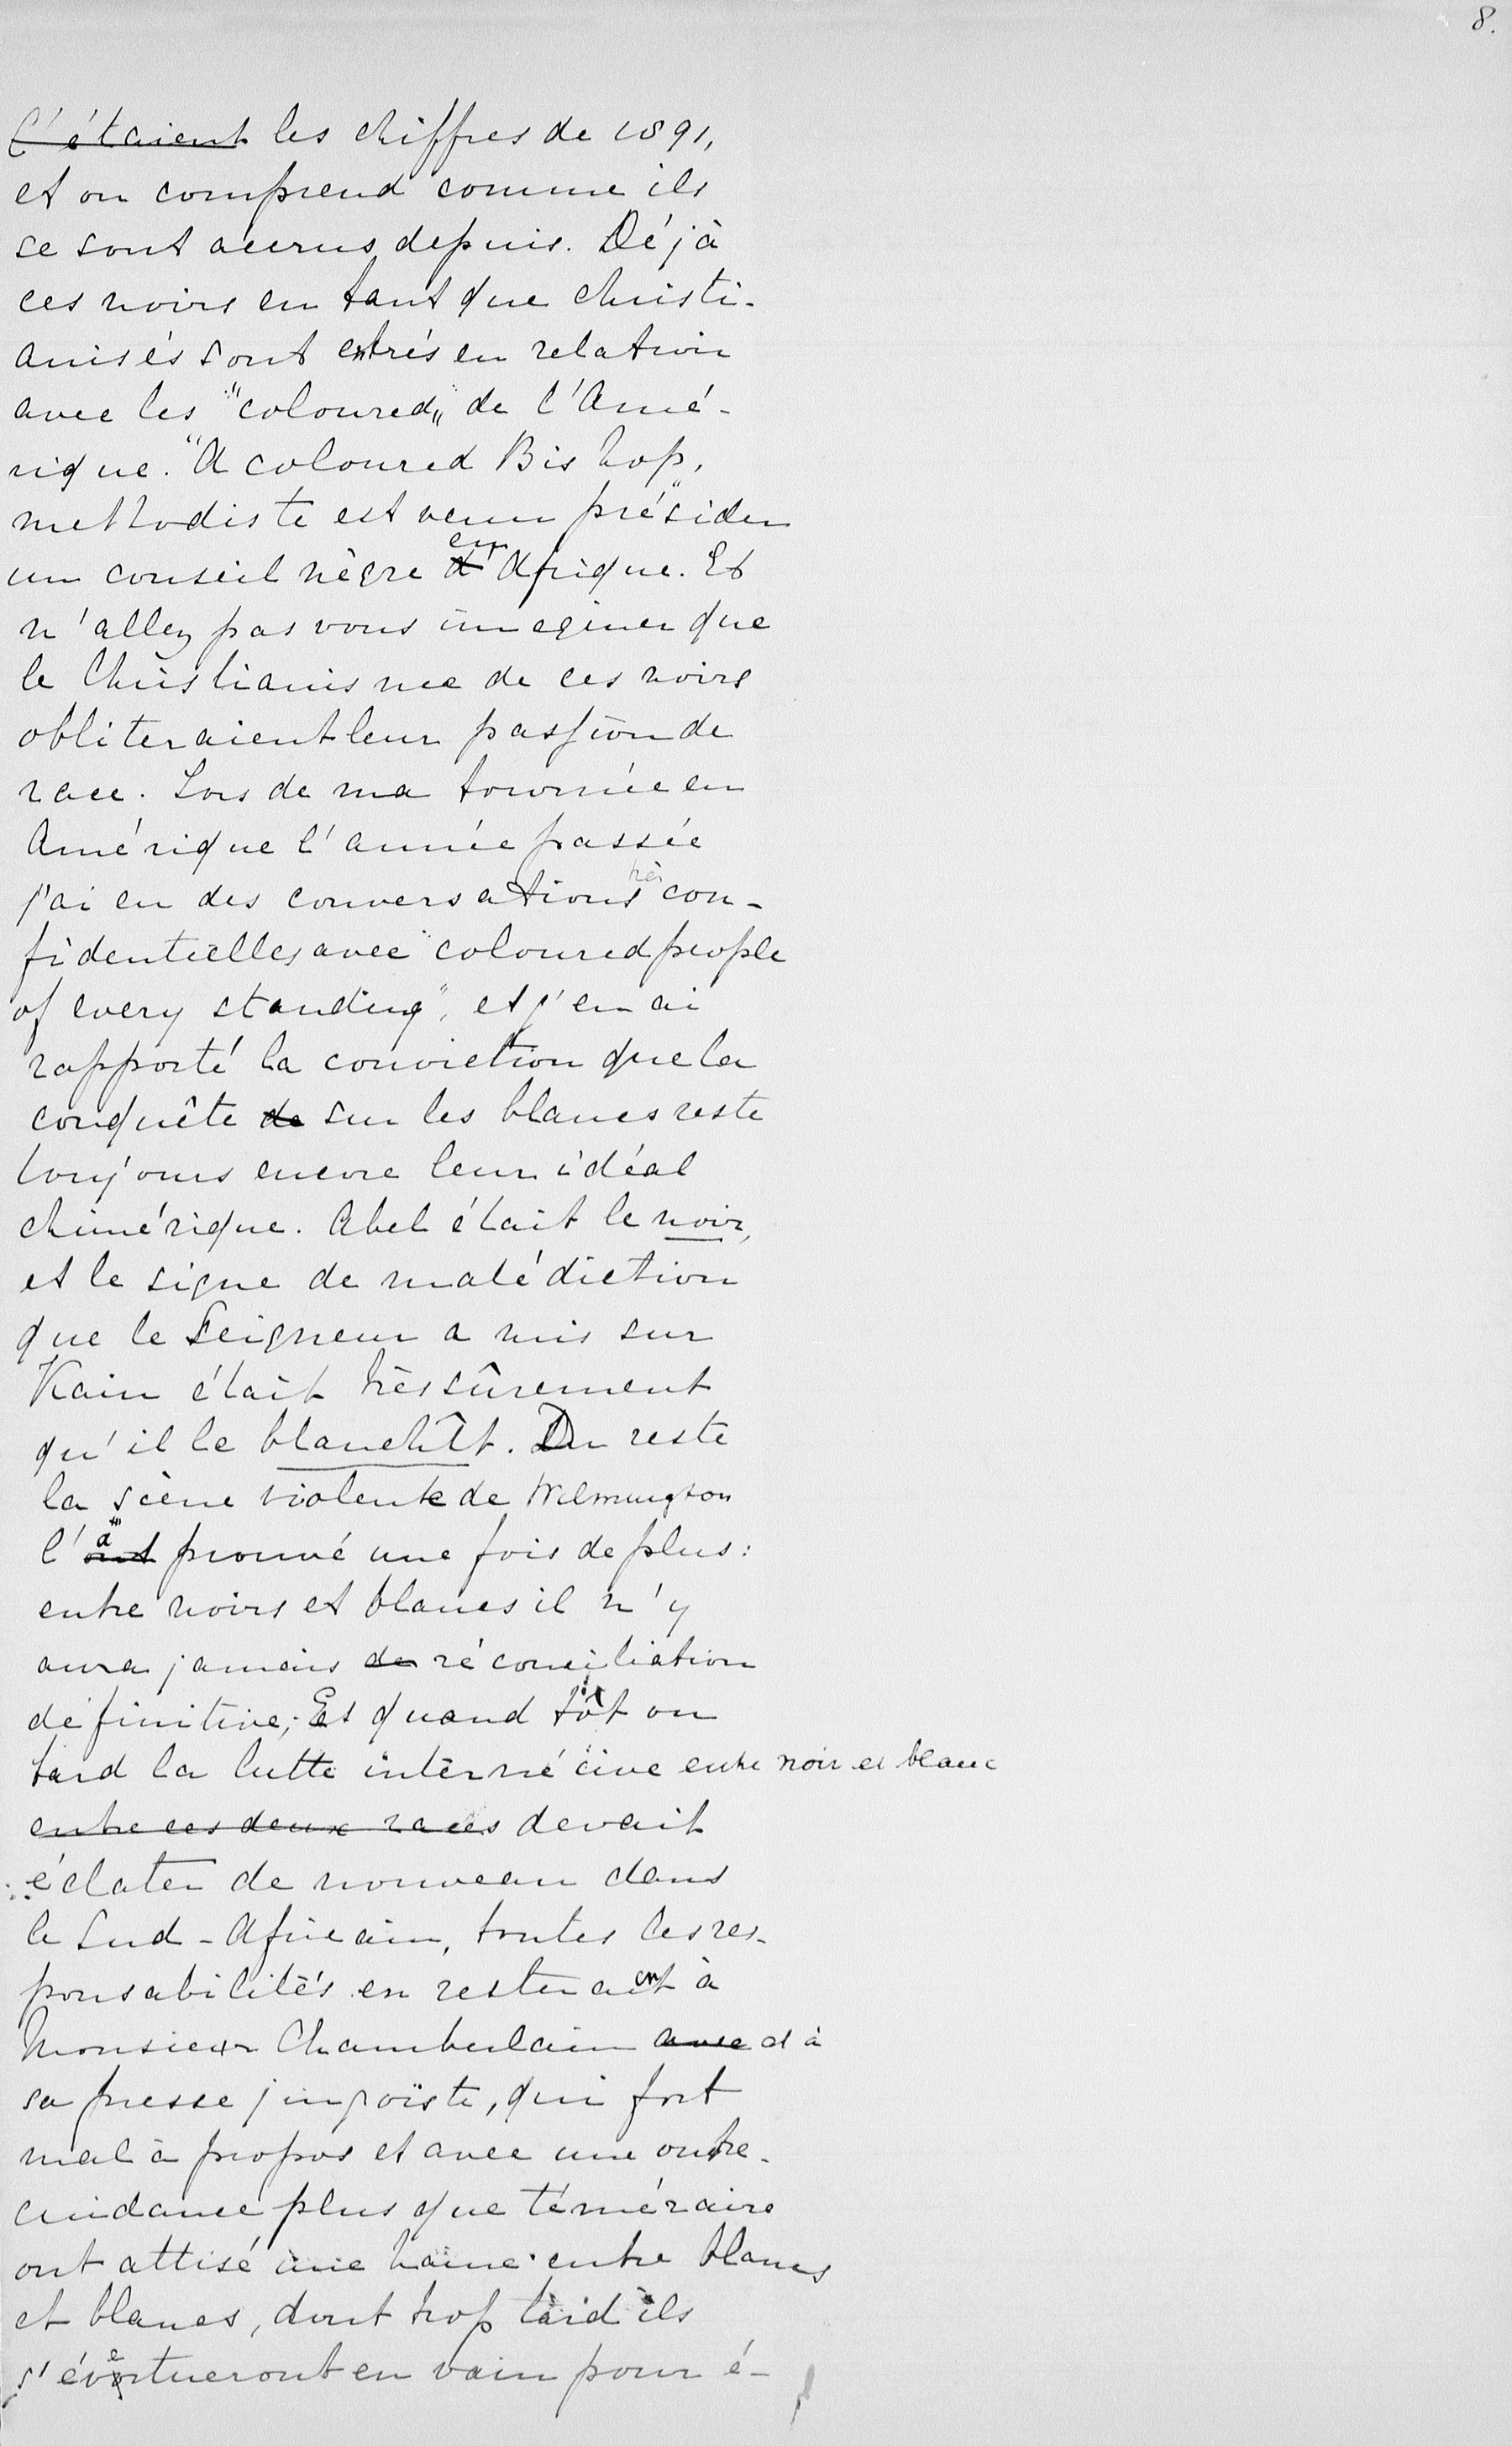 8.
C'étaient les chiffres de 1891,
et on comprend comme ils
se sont accrus depuis. Déjà
ces noirs en tant que christi-
anisés sont entrés en relation
avec les "coloured„ de l'Amé-
rique. "A coloured Bishop,"
methodiste est venu présider
un conseil nègre d' en Afrique. Et
n'allez pas vous imaginer que
le Christianisme de ces noirs
obliteraient leur passion de
race. Lors de ma tournée en
Amérique l'année passée
j'ai eu des conversations très con-
fidentielles avec "coloured people
of every standing", et j'en ai
rapporté la conviction que la
conquête de sur les blancs reste
toujours encore leur idéal
chimérique. Abel était le noir,
et le signe de malédiction
que le Seigneur a mis sur
Kain était très sûrement
qu'il le blanchît. Du reste
la scène violente de Wilmington
l'ont a prouvé une fois de plus:
entre noirs et blancs il n'y
aura jamais de réconciliation
définitive; Et quand tôt ou
tard la lutte internécine entre noir et blanc
entre ces deux races devait
éclater de nouveau dans
le Sud-Africain, toutes les res-
ponsabilités en resteraient à
Monsieur Chamberlain avec et à
sa presse jingoïste, qui fort
mal à propos et avec une outre-
cuidance plus que téméraire
ont attisé une haine entre blancs
et blancs, dont trop tard ils
s'évertueront en vain pour é-